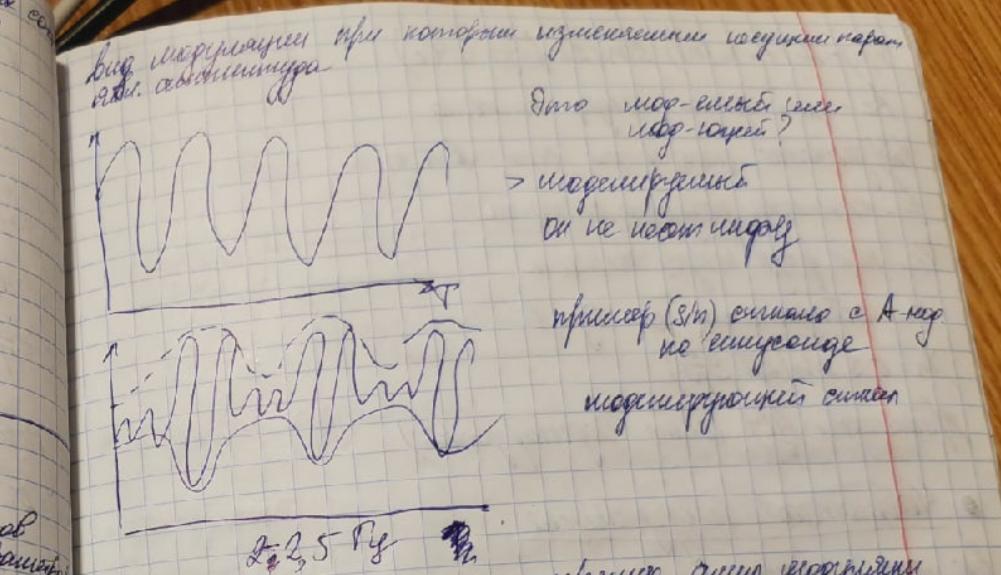 вид модуляции при котором изменяемым несущим парам
явл. амплитуда
Это мод-емый или
мод-ющий?
> моделируемый
он не несет инфу
T
пример (sin) сигнала с А-мод
по синусоиде
моделирующий сигнал
2,5 Гц